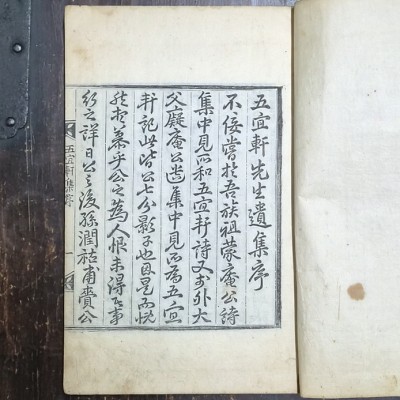 五宜軒先生遺集序
不佞嘗於吾族祖蒙庵公詩
集中見所和五宜軒詩又於外大
父凝庵公尚集中見所為五宜
軒記此皆公七分影子也因是而怳
然想慕乎公之為人恨未得其事
行之詳日公之後孫潤祜甫賚公
五宜軒集序
一